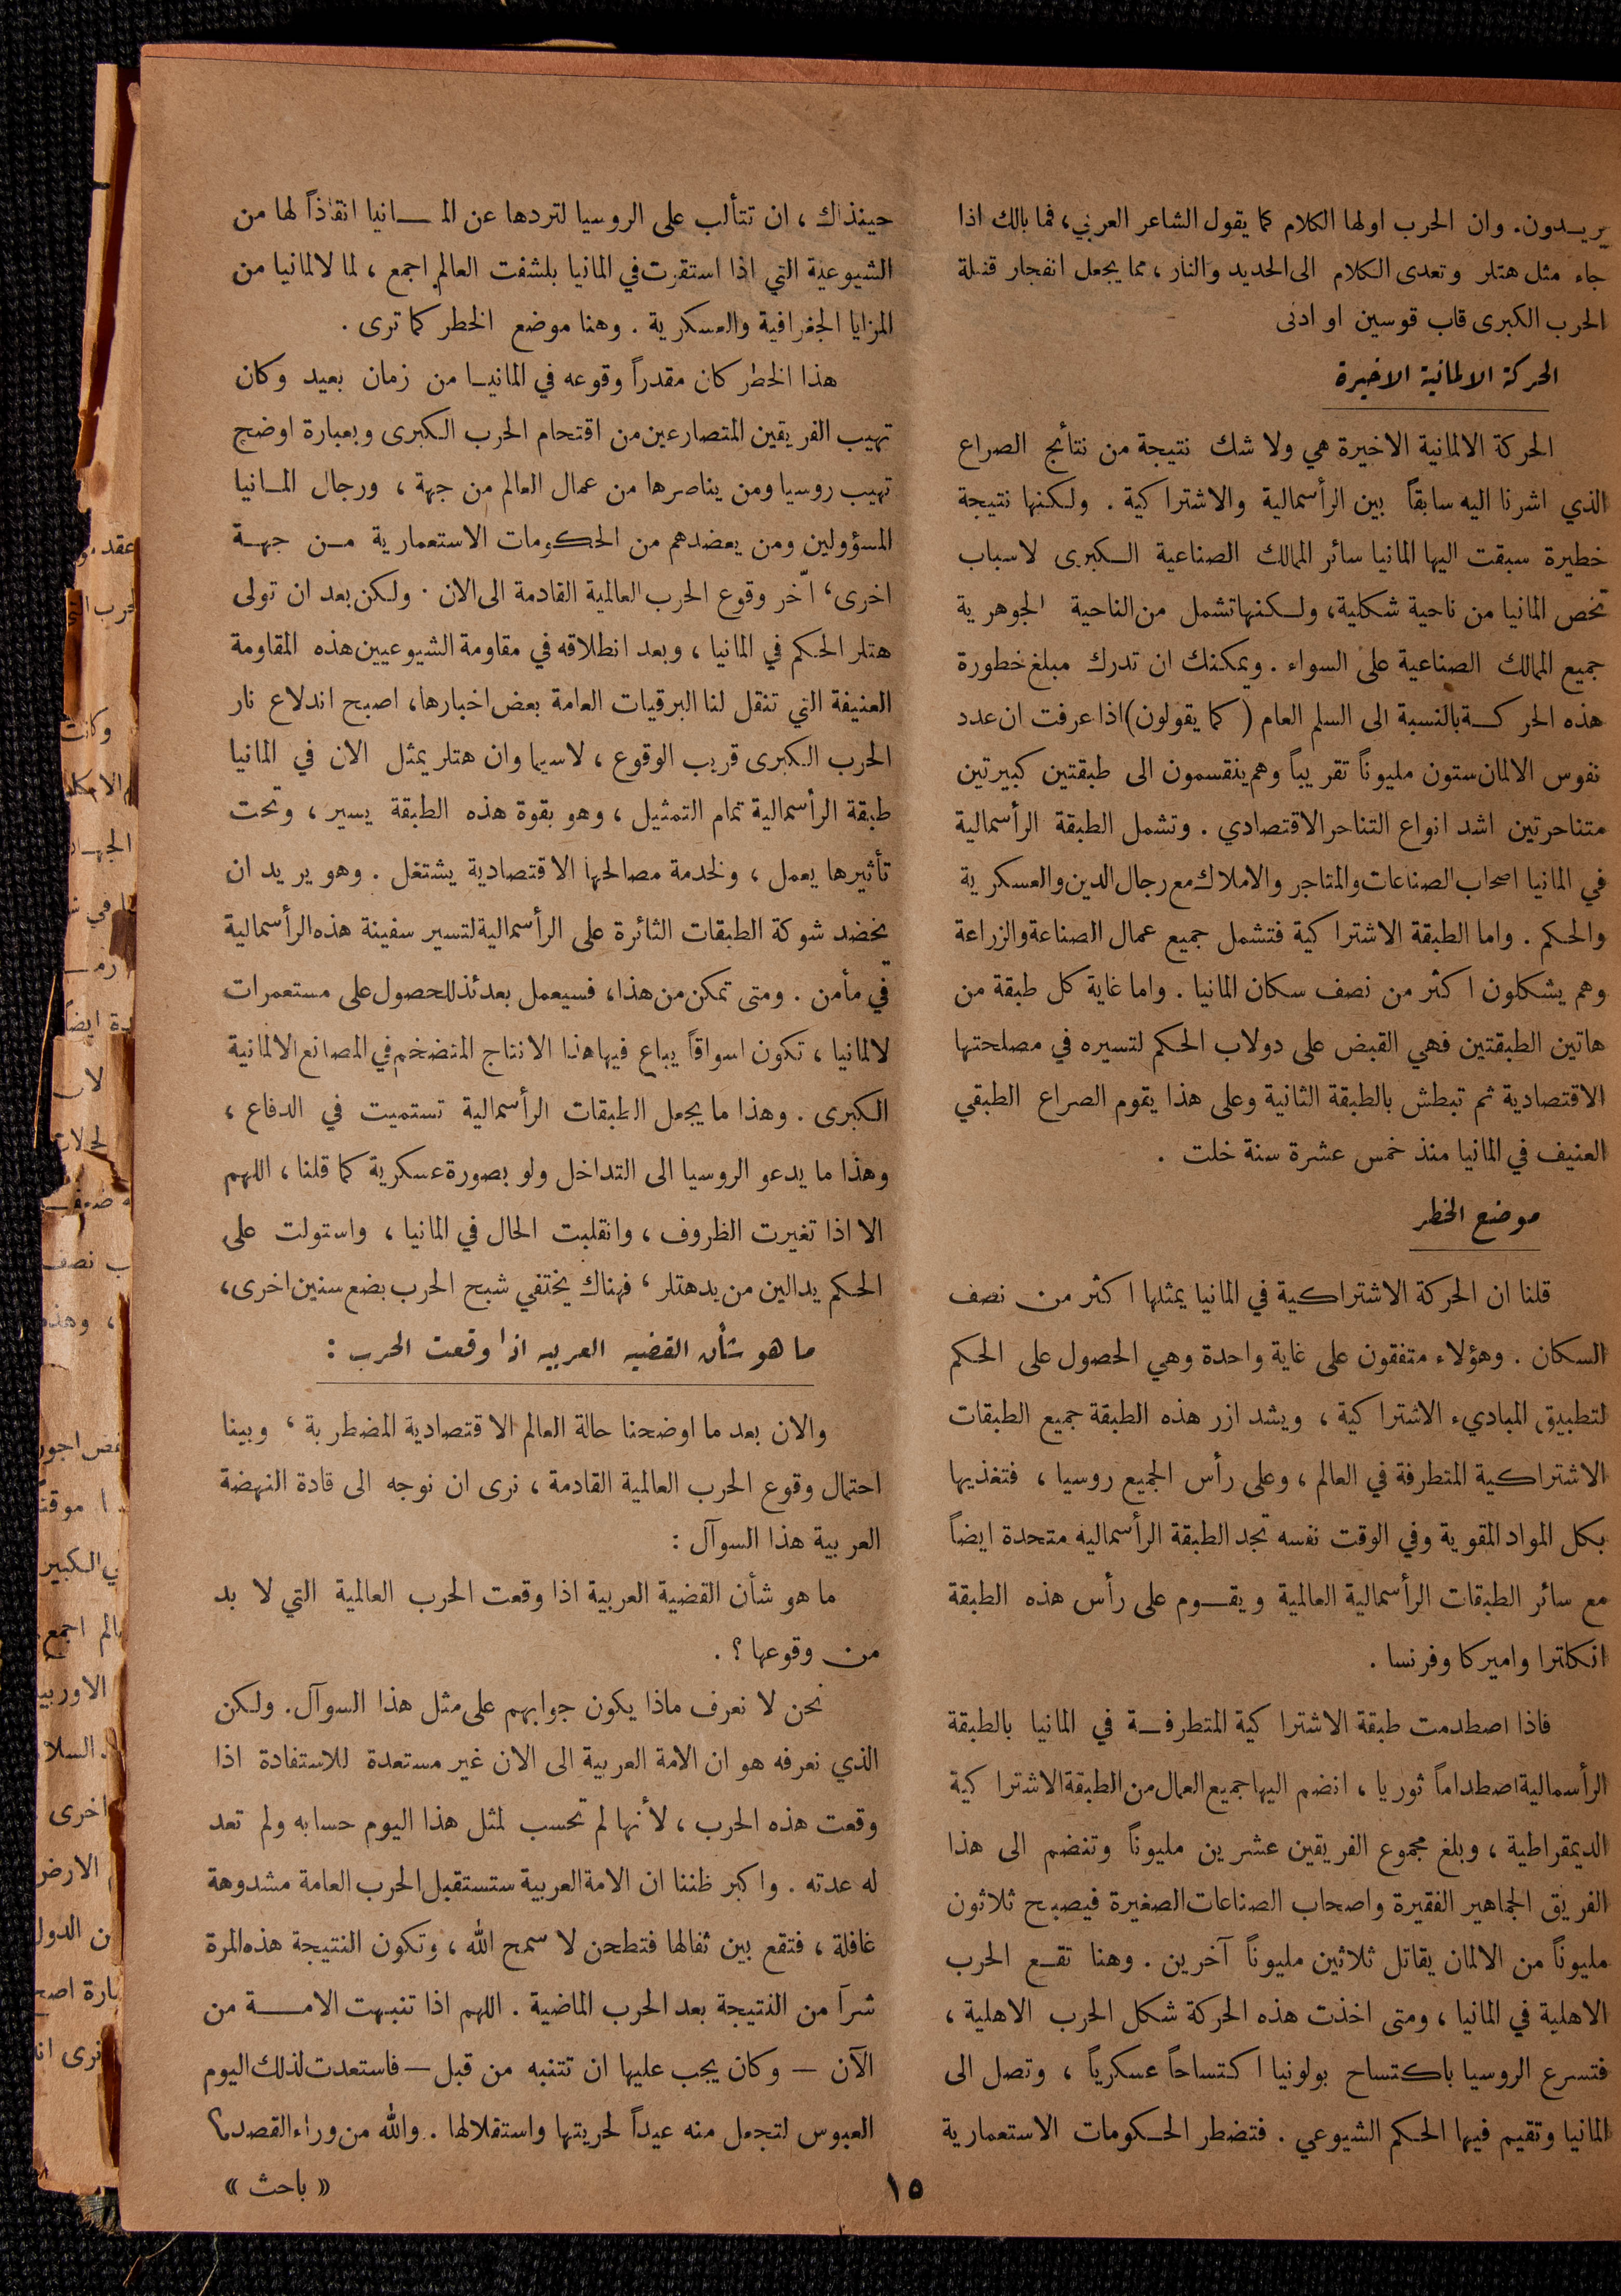 يريدون. وان الحرب اولها الكلام كما يقول الشاعر العربي، فما بالك اذا
جاء مثل هتلر وتعدى الكلام الى الحديد والنار، مما يجعل انفجار قنبلة
الحرب الكبرى قاب قوسين او ادنى
الحركة الالمانية الاخيرة
الحركة الالمانية الاخيرة هي ولا شك نتيجة من نتأئج الصراع
الذي اشرنا اليه سابقاً بين الرأسمالية والاشتراكية . ولكنها نتيجة
خطيرة سبقت اليها المانيا سائر الممالك الصناعية الكبرى لاسباب
تخص المانيا من ناحية شكلية، ولكنها تشمل من الناحية الجوهرية
جميع الممالك الصناعية على السواء . ويمكنك ان تدرك مبلغ خطورة
هذه الحركة بالنسبة الى السلم العام ( كما يقولون) اذا عرفت ان عدد
نفوس الالمان ستون مليوناً تقريباً وهم ينقسمون الى طبقتين كبيرتين
متناحرتين اشد انواع التناحر الاقتصادي . وتشمل الطبقة الرأسمالية
في المانيا اصحاب الصناعات والمتاجر والاملاك مع رجال الدين والعسكرية
والحكم . واما الطبقة الاشتراكية فتشمل جميع عمال الصناعة والزراعة
وهم يشكلون اكثر من نصف سكان المانيا . واما غاية كل طبقة من
هاتين الطبقتين فهي القبض على دولاب الحكم لتسيره في مصلحتها
الاقتصادية ثم تبطش بالطبقة الثانية وعلى هذا يقوم الصراع الطبقي
العنيف في المانيا منذ خمس عشرة سنة خلت .
موضع الخطر
قلنا ان الحركة الاشتراكية في المانيا يمثلها اكثر من نصف
السكان . وهؤلاء متفقون على غاية واحدة وهي الحصول على الحكم
لتطبيق المباديء الاشتراكية ، ويشد ازر هذه الطبقة جميع الطبقات
الاشتراكية المتطرفة في العالم ، وعلى رأس الجميع روسيا ، فتغذيها
بكل المواد المقوية وفي الوقت نفسه تجد الطبقة الرأسماليه متحدة ايضاً
مع سائر الطبقات الرأسمالية العالمية ويقوم على رأس هذه الطبقة
انكلترا واميركا وفرنسا .
فاذا اصطدمت طبقة الاشتراكية المتطرفة في المانيا بالطبقة
الرأسمالية اصطداماً ثوريا ، انضم اليها جميع العمال من الطبقة الاشتراكية
الديمقراطية ، وبلغ مجموع الفريقين عشرين مليوناً وتنضم الى هذا
الفريق الجماهير الفقيرة واصحاب الصناعات الصغيرة فيصبح ثلاثون
مليوناً من الالمان يقاتل ثلاثين مليوناً آخرين . وهنا تقع الحرب
الاهلية في المانيا ، ومتى اخذت هذه الحركة شكل الحرب الاهلية ،
فتسرع الروسيا باكتساح بولونيا اكتساحاً عسكرياً ، وتصل الى
المانيا وتقيم فيها الحكم الشيوعي . فتضطر الحكومات الاستعمارية
حينذاك ، ان تتألب على الروسيا لتردها عن المانيا انقاذاً لها من
الشيوعية التي اذا استقرت في المانيا بلشفت العالم اجمع ، لما لالمانيا من
المزايا الجغرافية والعسكرية . وهنا موضع الخطر كما ترى .
هذا الخطر كان مقدراً وقوعه في المانيا من زمان بعيد وكان
تهيب الفريقين المتصارعين من اقتحام الحرب الكبرى وبعبارة اوضح
تهيب روسيا ومن يناصرها من عمال العالم من جهة ، ورجال المانيا
المسؤولين ومن يعضدهم من الحكومات الاستعمارية من جهة
اخرى، اخّر وقوع الحرب العالمية القادمة الى الان . ولكن بعد ان تولى
هتلر الحكم في المانيا ، وبعد انطلاقه في مقاومة الشيوعيين هذه المقاومة
العنيفة التي تنقل لنا البرقيات العامة بعض اخبارها، اصبح اندلاع نار
الحرب الكبرى قريب الوقوع ، لاسيما وان هتلر يمثل الان في المانيا
طبقة الرأسمالية تمام التمثيل ، وهو بقوة هذه الطبقة يسير ، وتحت
تأثيرها يعمل ، ولخدمة مصالحها الاقتصادية يشتغل . وهو يريد ان
يخضد شوكة الطبقات الثائرة على الرأسمالية لتسير سفينة هذه الرأسمالية
في مأمن . ومتى تمكن من هذا، فسيعمل بعدئذ للحصول على مستعمرات
لالمانيا ، تكون اسواقاً يباع فيها هذا الانتاج المتضخم في المصانع الالمانية
الكبرى . وهذا ما يجعل الطبقات الرأسمالية تستميت في الدفاع ،
وهذا ما يدعو الروسيا الى التداخل ولو بصورة عسكرية كما قلنا ، اللهم
الا اذا تغيرت الظروف ، وانقلبت الحال في المانيا ، واستولت على
الحكم يد الين من يد هتلر ، فهناك يختفي شبح الحرب بضع سنين اخرى ،
ما هو شأن القضيه العربيه اذا وقعت الحرب :
والان بعد ما اوضحنا حالة العالم الاقتصادية المضطربة ، وبينا
احتمال وقوع الحرب العالمية القادمة ، نرى ان نوجه الى قادة النهضة
العربية هذا السوآل :
ما هو شأن القضية العربية اذا وقعت الحرب العالمية التي لا بد
من وقوعها ؟ .
نحن لا نعرف ماذا يكون جوابهم على مثل هذا السوآل. ولكن
الذي نعرفه هو ان الامة العربية الى الان غير مستعدة للاستفادة اذا
وقعت هذه الحرب ، لأنها لم تحسب لمثل هذا اليوم حسابه ولم تعد
له عدته . واكبر ظننا ان الامة العربية ستستقبل الحرب العامة مشدوهة
غافلة ، فتقع بين ثفالها فتطحن لا سمح الله ، وتكون النتيجة هذه المرة
شراً من النتيجة بعد الحرب الماضية . اللهم اذا تنبهت الامة من
الآن — وكان يجب عليها ان تتنبه من قبل — فاستعدت لذلك اليوم
العبوس لتجعل منه عيداً لحريتها واستقلالها . والله من وراء القصد
« باحث »
١٥